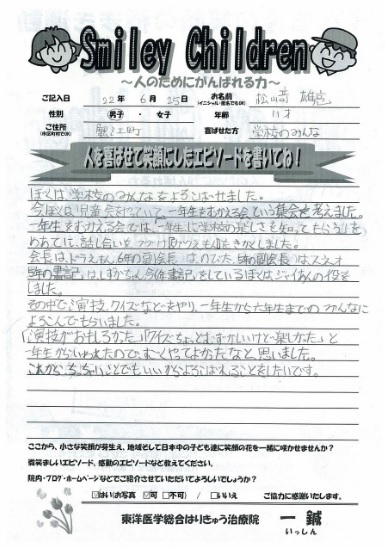 Smiley Children
～人のためにがんばれる力～
ご記入日 22年 6月 25日 お名前 (イニシャル・匿名でもOK)
性別 男子・女子 年齢 11才
ご住所 喜ばせた方 学校のみんな
人を喜ばせて笑顔にしたエピソードを書いてね！
ぼくは、学校のみんなをよろこばせました。
今ぼくは、児童会をやっていて、一年生をむかえる会という集会を考えました。
一年生をむかえる会では「一年生に学校の楽しさを知ってもらう」を
めあてに、話し合いを
会長は、ドラえもん、6年の副会長は、のび太、5年の副会長は、スネオ
5年の書記は、しずかちゃん、今年書記をしているぼくは、ジャイアンの役を
しました。
その中で、演技、クイズなどをやり、一年生から六年生までのみんなに
よろこんでもらいました。
「演技がおもしろかった」「クイズちょっとむずかしいけど楽しかった」と
一年生からいわれたので、やってよかったなと思いました。
これからも、小さいことでもいいからよろこばれることをしたいです。
ここから、小さな笑顔が芽生え、地域そして日本中の子ども達に笑顔の花を一緒に咲かせませんか？
微笑ましいエピソード、感動のエピソードなど教えてください。
院内・ブログ・ホームページなどでご紹介させていただいてよろしいでしょうか？
はい(お写真 可 不可) / いいえ ご協力に感謝いたします。
東洋医学総合はりきゅう治療院 一鍼
いっしん